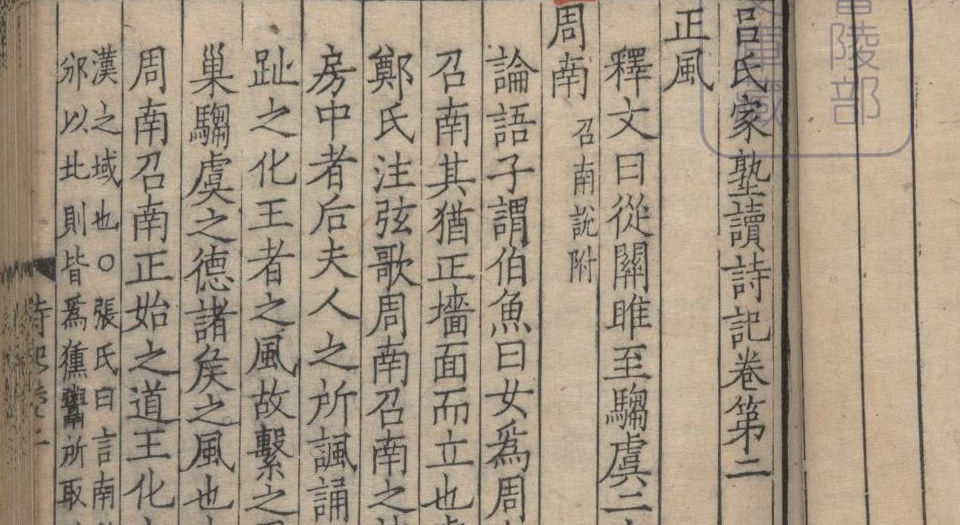 書陵部
呂氏家塾讀詩記卷第二
正風
釋文曰從關雎至騶虞二
周南 召南說附
論語子謂伯魚曰女爲周
召南其猶正墻面而立也
鄭氏注弦歌周南召南之
房中者后夫人之所諷誦
趾之化王者之風故繫之
巢騶虞之德諸矦之風也
周南召南正始之道王化
漢之域也○張氏曰言南
邠以此則皆爲獯鬻所取
詩記卷二